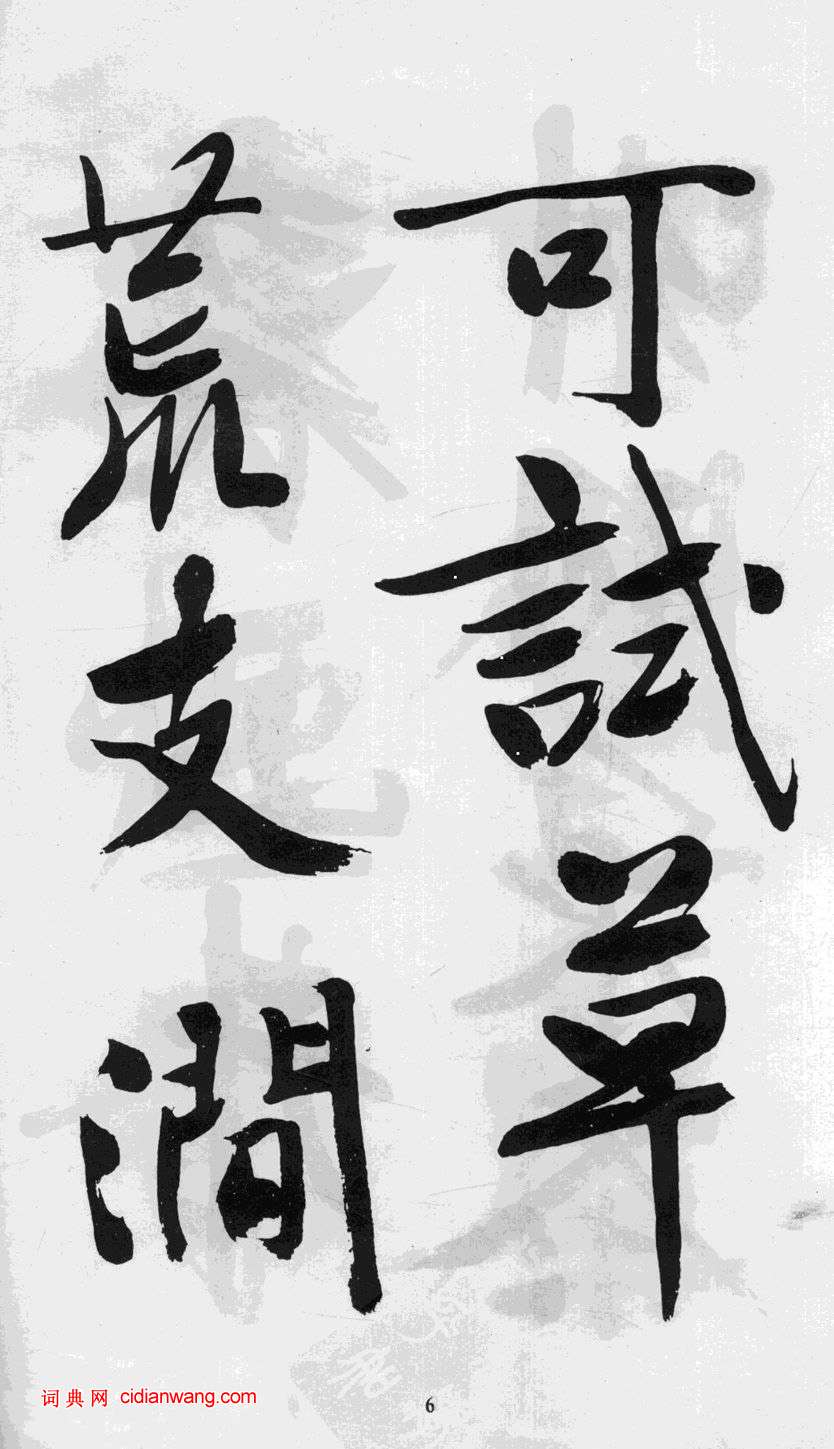 可試草
荒支澗
词典网 cidianwang.com
6